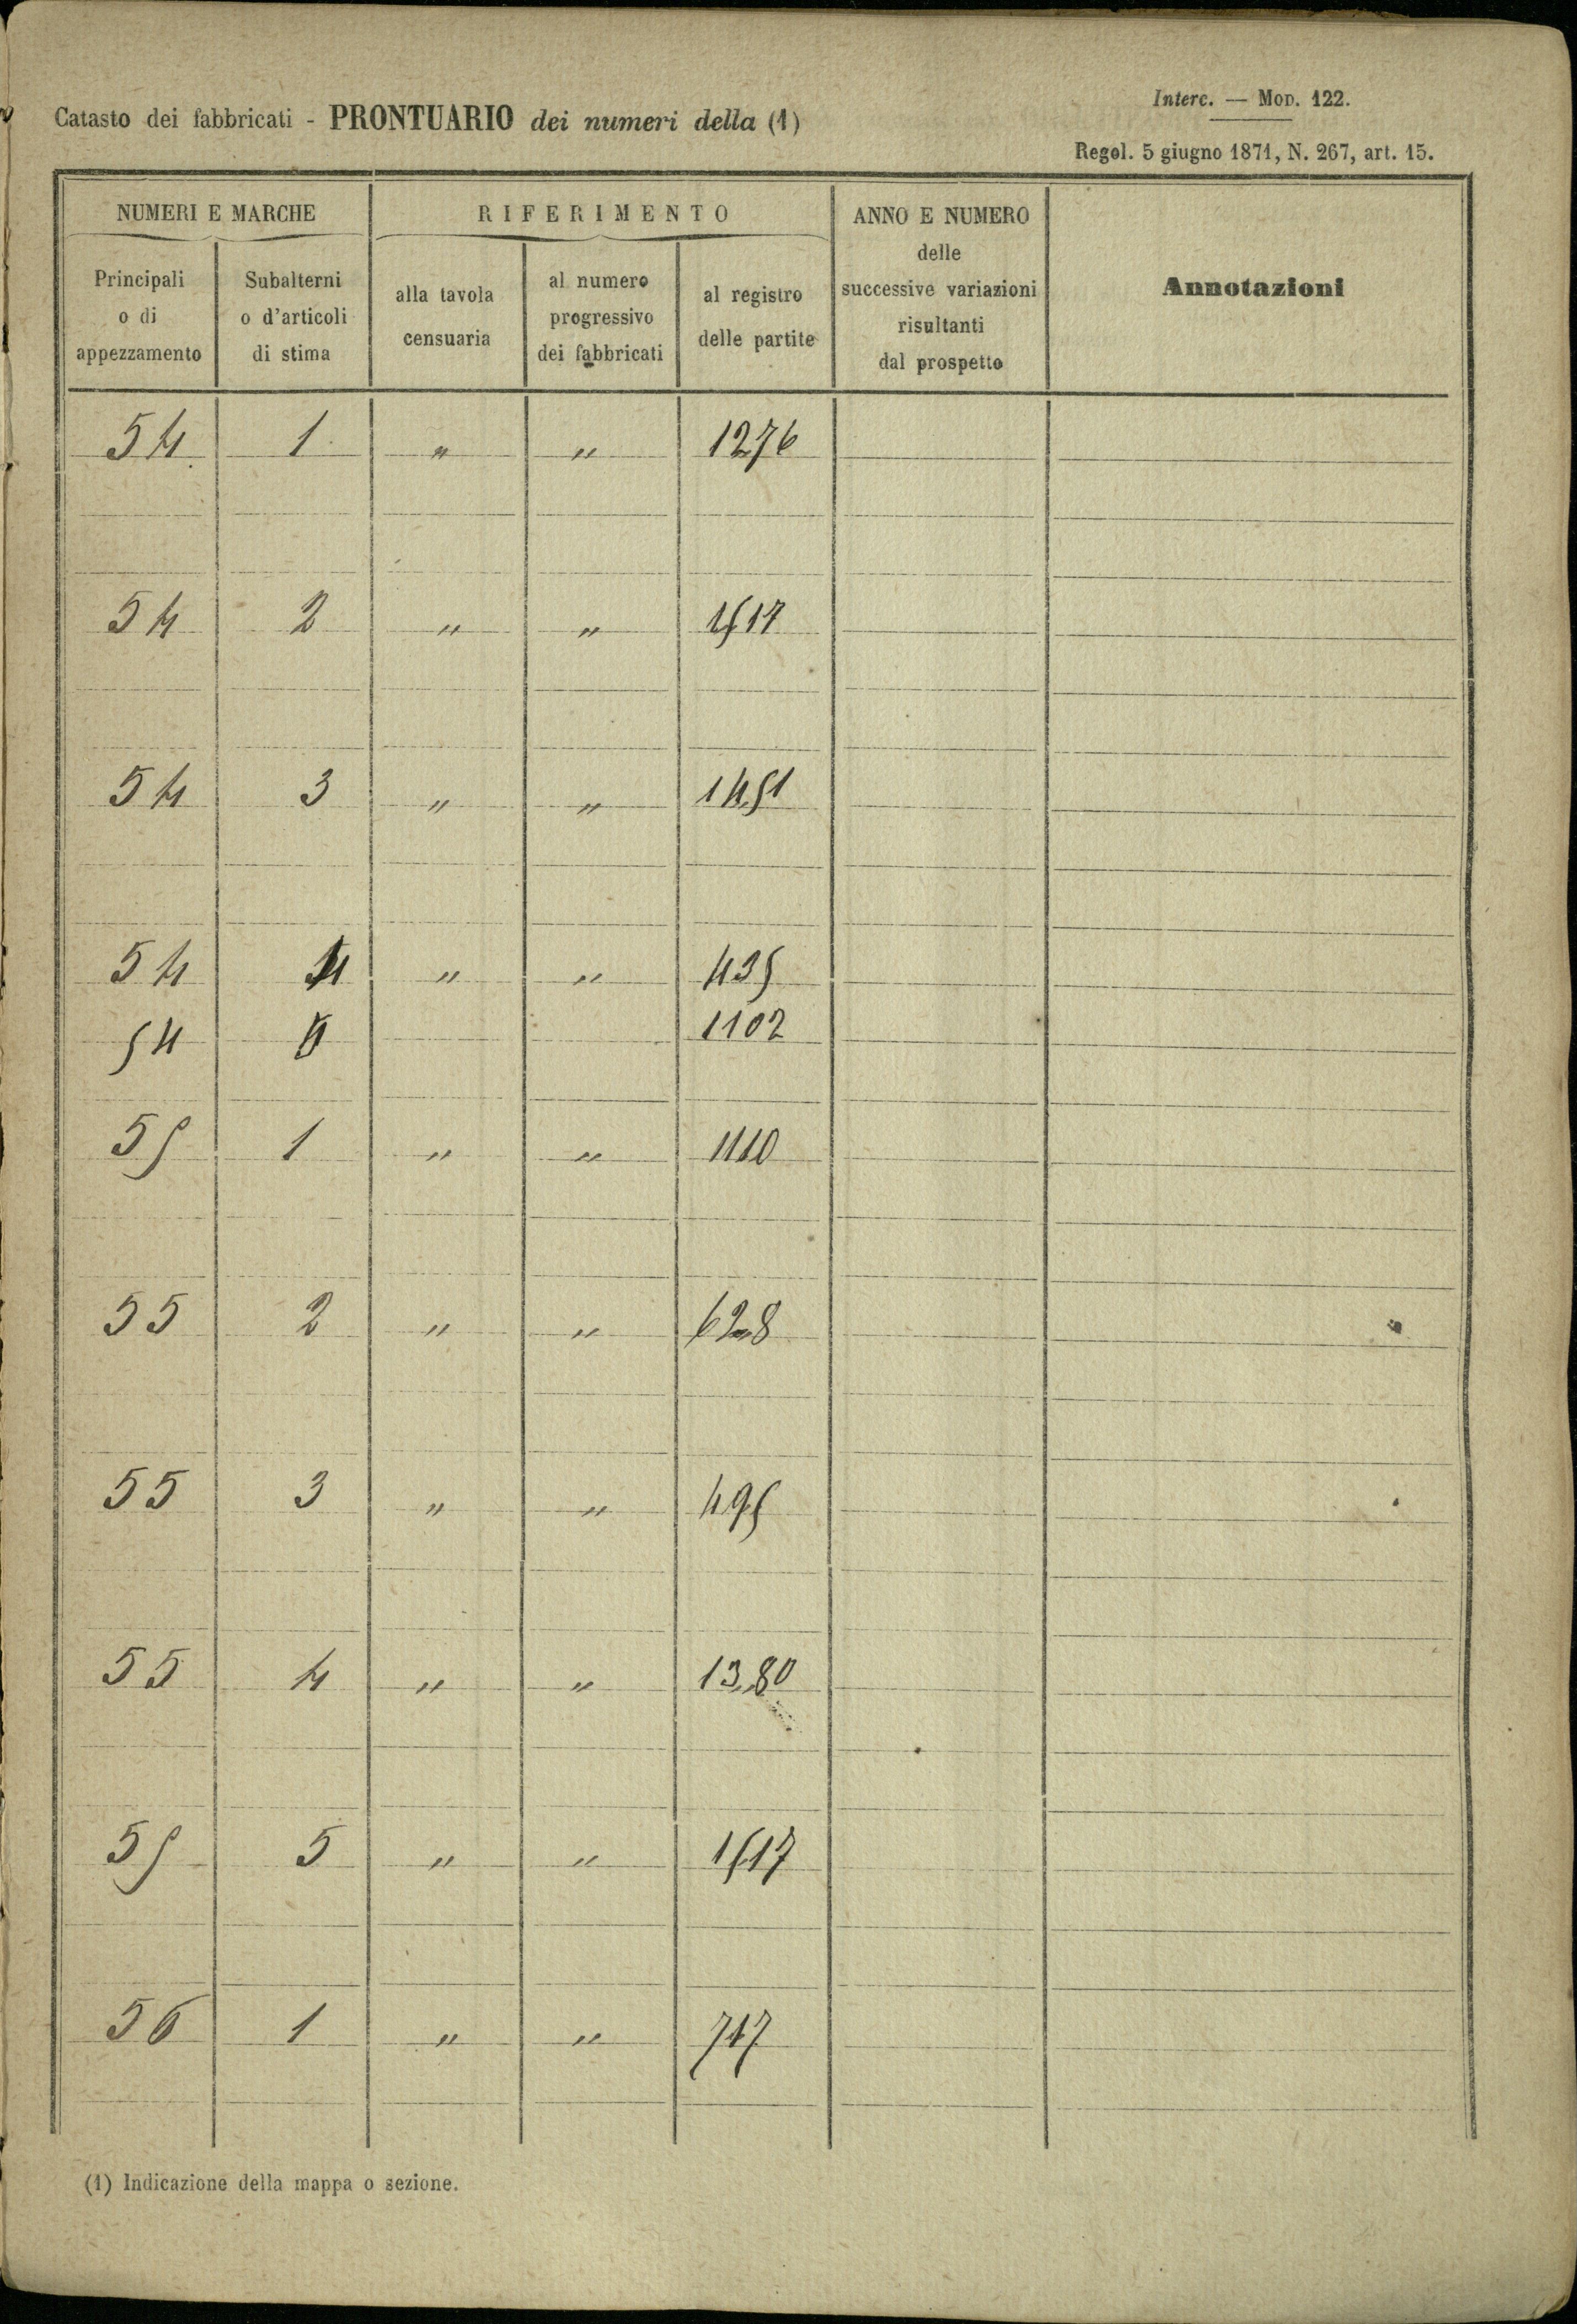 Catasto dei fabbricati - PRONTUARIO dei numeri della (1)
Interc. — Mod. 122.
Regol. 5 giugno 1871, N. 267, art. 15.
NUMERI E MARCHE
RIFERIMENTO
ANNO E NUMERO
delle
successive variazioni
risultanti
dal prospetto
Annotazioni
Principali
o di
appezzamento
Subalterni
o d'articoli
di stima
alla tavola
censuaria
al numero
progressivo
dei fabbricati
al registro
delle partite
54 1 " " 1276
54 2 " " 1517
54 3 " " 1451
54 4 " " 435
54 1102
55 1 " " 1110
55 2 " " 628
55 3 " " 495
55 4 " " 1380
55 5 " " 1517
56 1 " " 717
(1) Indicazione della mappa o sezione.